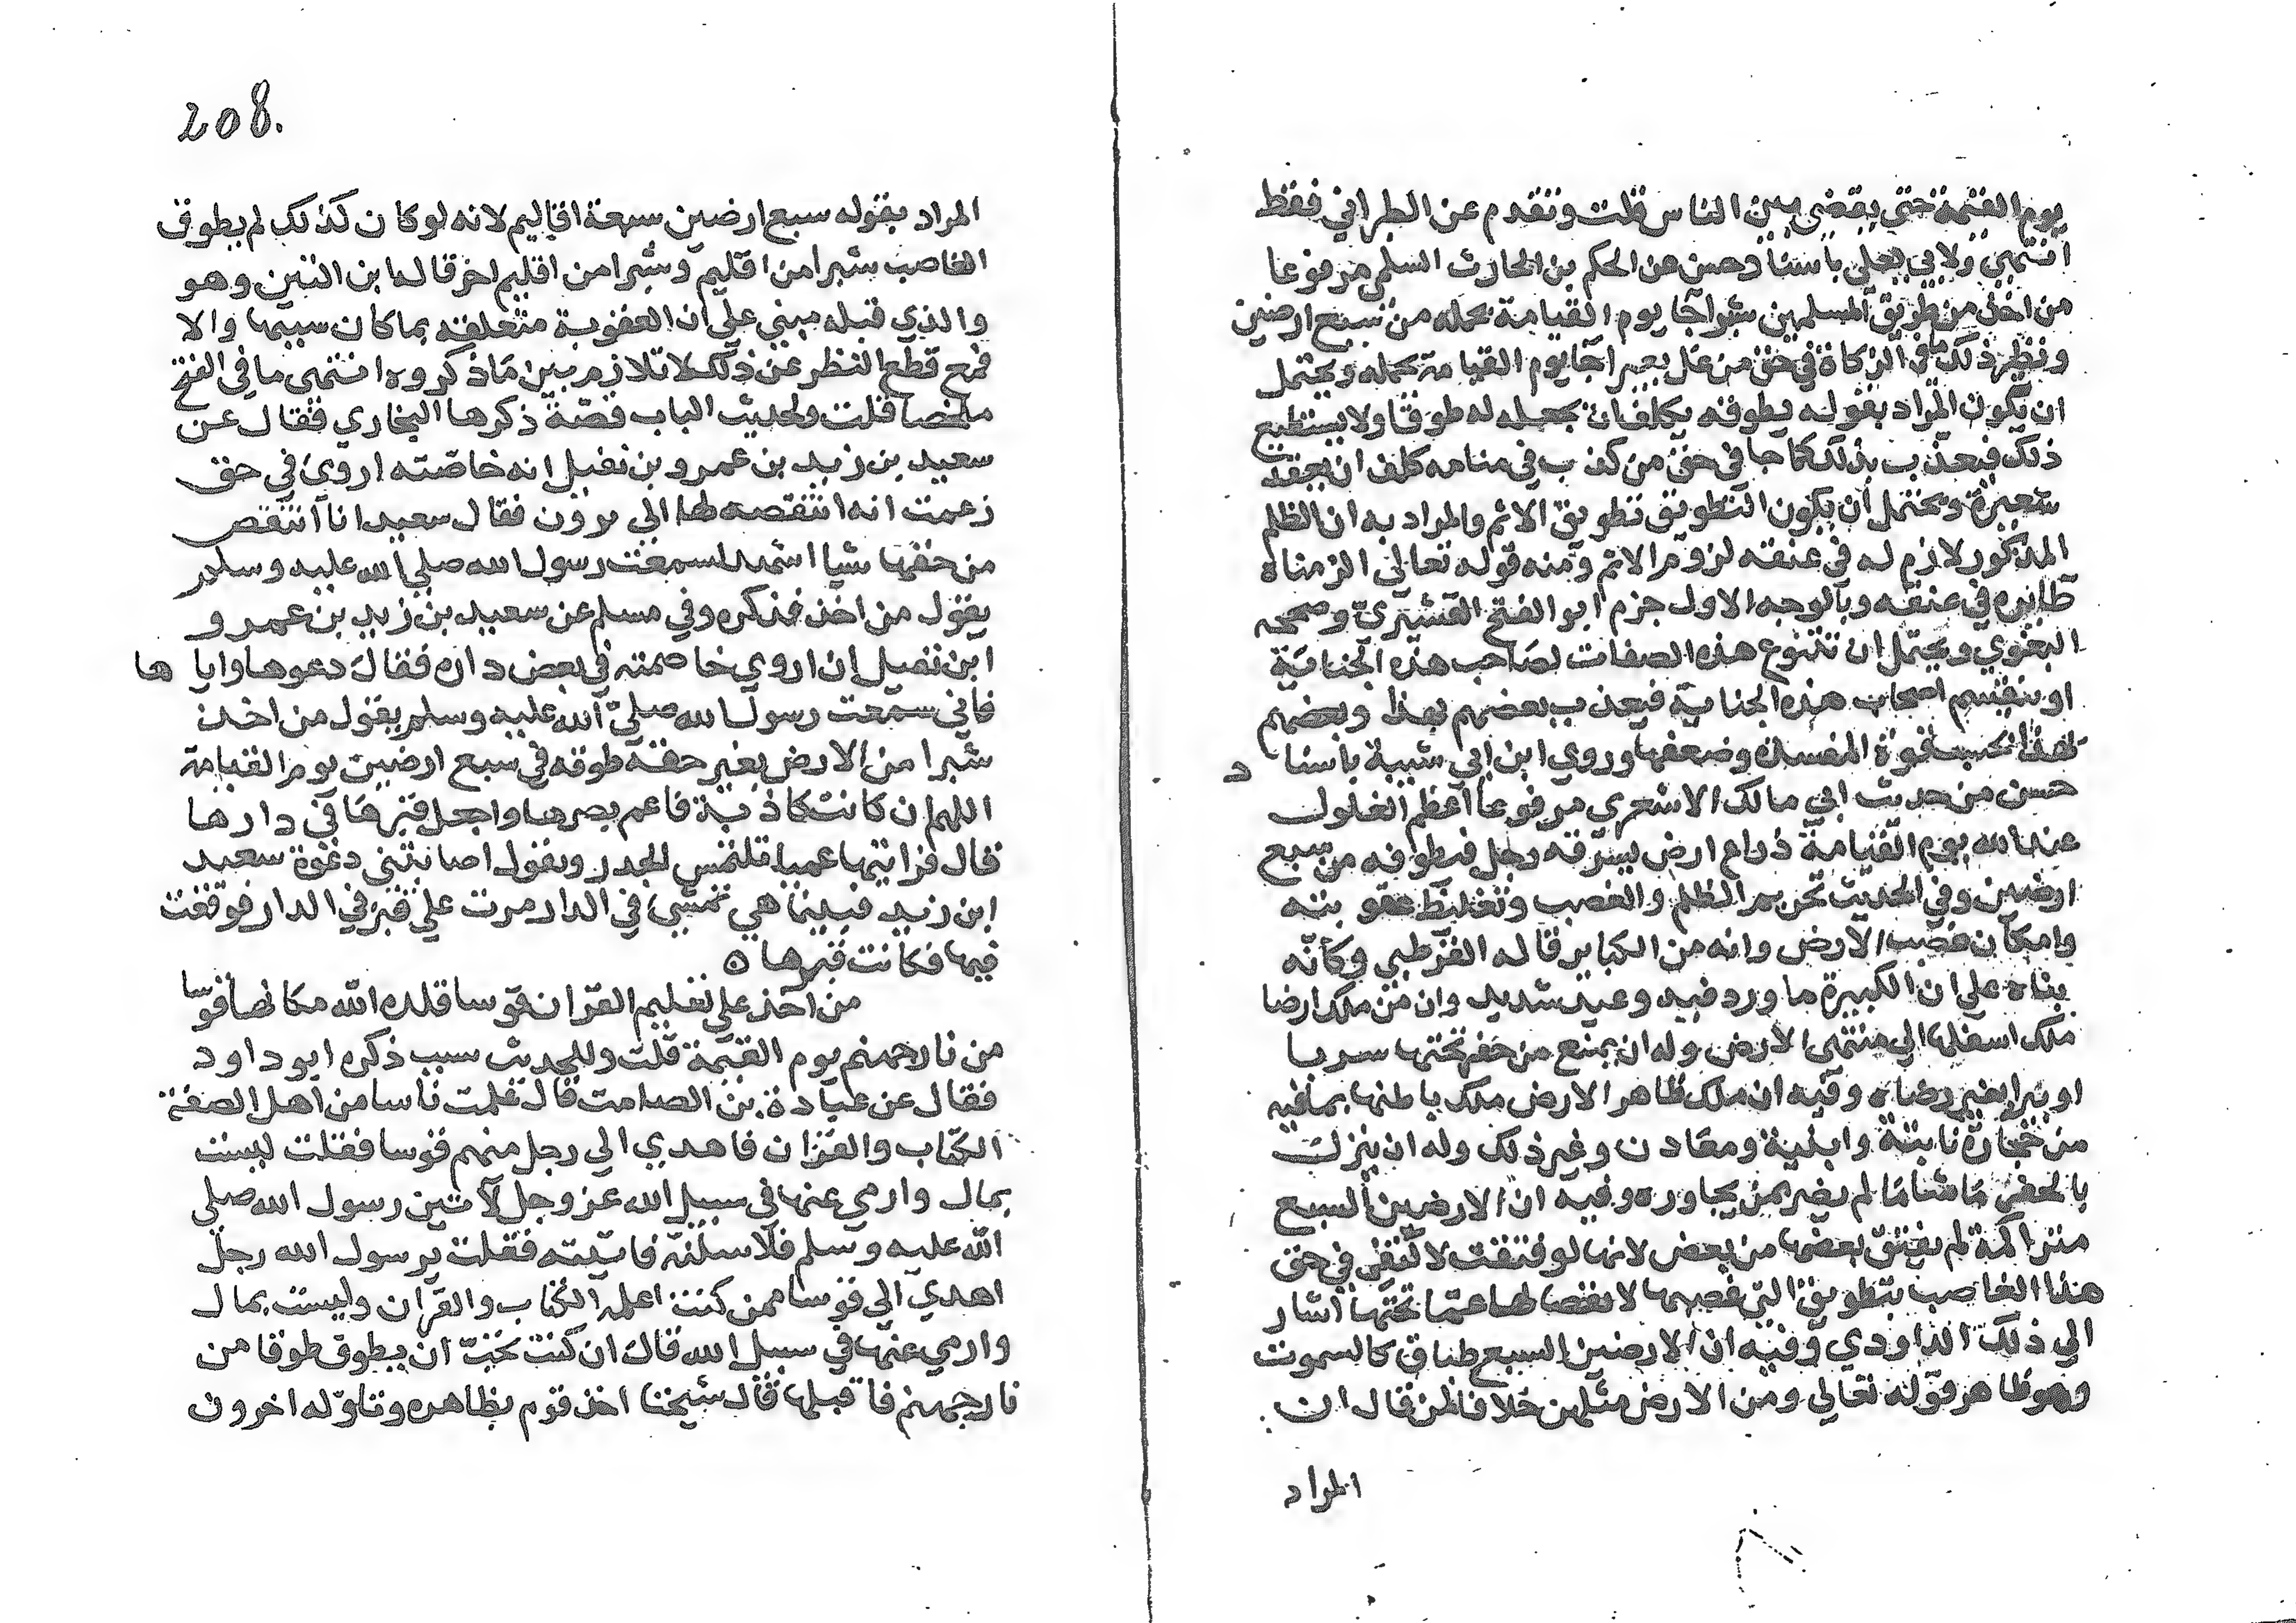 يوم القيمة حتى يقضى بين الناس قلت وتقدم عن الطبراني فقط
انتهى ولابي يعلى باسناد حسن عن الحكم بن الحارث السلمي مرفوعا
من اخذ من طريق المسلمين شبرا جا يوم القيامة يحمله من سبع ارضين
ونظير ذلك ما في الزكاة في حق من غل بعيرا جا يوم القيامة يحمله ويحتمل
ان يكون المراد بقوله يطوقه يكلف ان يجعله له طوقا ولا يستطيع
ذلك فيعذب بذلك كما جا في حق من كذب في منامه كلف ان يعقد
شعيرة ويحتمل ان يكون التطويق تطويق الاثم والمراد به ان الظلم
المذكور لازم له في عنقه لزوم الاثم ومنه قوله تعالى الزمناه
طايره في عنقه وبالوجه الاول جزم ابو الفتح القشيري وصححه
البغوي ويحتمل ان تتنوع هذه الصفات لصاحب هذه الجناية
او ينقسم اصحاب هذه الجناية فيعذب بعضهم بهذا وبعضهم
بهذا بحسب قوة المفسدة وضعفها وروي ابن ابي شيبة باسناد
حسن من حديث ابي مالك الاشعري مرفوعا اعظم الغلول
عند الله يوم القيامة ذراع ارض يسرقه رجل فيطوقه من سبع
ارضين وفي الحديث تحريم الظلم والغصب وتغليظ عقوبته
وامكان غصب الارض وانه من الكباير قاله القرطبي وكانه
بناه على ان الكبيرة ما ورد فيه وعيد شديد وان من ملك ارضا
ملك اسفلها الي منتهى الارض وله ان يمنع من حفر تحتها سربا
او بيرا بغير رضاه وفيه ان ملك ظاهر الارض ملك باطنها بما فيه
من حجارة ثابتة وابنية ومعادن وغير ذلك وله ان ينزل
بالحفر ما شا ما لم يضر بمن يجاوره وفيه ان الارضين السبع
متراكمة لم يفتق بعضها من بعض لانها لو فتقت لاكتفى في حق
هذا الغاصب بتطويق التي غصبها لانفصالها عما تحتها اشار
الي ذلك الداودي وفيه ان الارضين السبع طباق كالسموت
وهو ظاهر قوله تعالي ومن الارض مثلهن خلافا لمن قال ان
المراد
208.
المراد بقوله سبع ارضين سبعة اقاليم لانه لو كان كذلك لم يطوق
الغاصب شبرا من اقليم وشبرا من اقليم اخر قاله ابن التين وهو
والذي قبله مبني على ان العقوبة متعلقة بما كان سببها والا
فمع قطع النظر عن ذلك لا تلازم بين ما ذكروه انتهى ما في الفتح
ملخصا قلت ولحديث الباب قصة ذكرها البخاري فقال عن
سعيد بن زيد بن عمرو بن نفيل انه خاصته اروى في حق
زعمت انه انتقصه لها الي مروان فقال سعيد انا انتقص
من حقها شيا اشهد لسمعت رسول الله صلي الله عليه وسلم
يقول من اخذ فذكره وفي مسلم عن سعيد بن زيد بن عمرو
ابن نفيل ان اروي خاصمته في بعض داره فقال دعوها واياها
فاني سمعت رسول الله صلى الله عليه وسلم يقول من اخذ
شبرا من الارض بغير حقه طوقه في سبع ارضين يوم القيامة
اللهم ان كانت كاذبة فاعم بصرها واجعل قبرها في دارها
قال فرايتها عميا تلتمس الجدر وتقول اصابتني دعوة سعيد
ابن زيد فبينا هي تمشي في الدار مرت على قبر في الدار فوقعت
فيها فكانت قبرها ه
من اخذ علي تعليم القران قوسا قلده الله مكانها قوسا
من نار جهنم يوم القيمة قلت وللحديث سبب ذكره ابو داود
فقال عن عبادة بن الصامت قال علمت ناسا من اهل الصفة
الكتاب والقران فاهدي الي رجل منهم قوسا فقلت ليست
بمال وارمي عنها في سبيل الله عز وجل لآتين رسول الله صلى
الله عليه وسلم فلاسلنه فاتيته فقلت يرسول الله رجل
اهدي الي قوسا ممن كنت اعلمه الكتاب والقران وليست بمال
وارمي عنها في سبيل الله قال ان كنت تحب ان يطوق طوقا من
نار جهنم فاقبلها قال شيخنا اخذ قوم بظاهره وتاوله اخرون